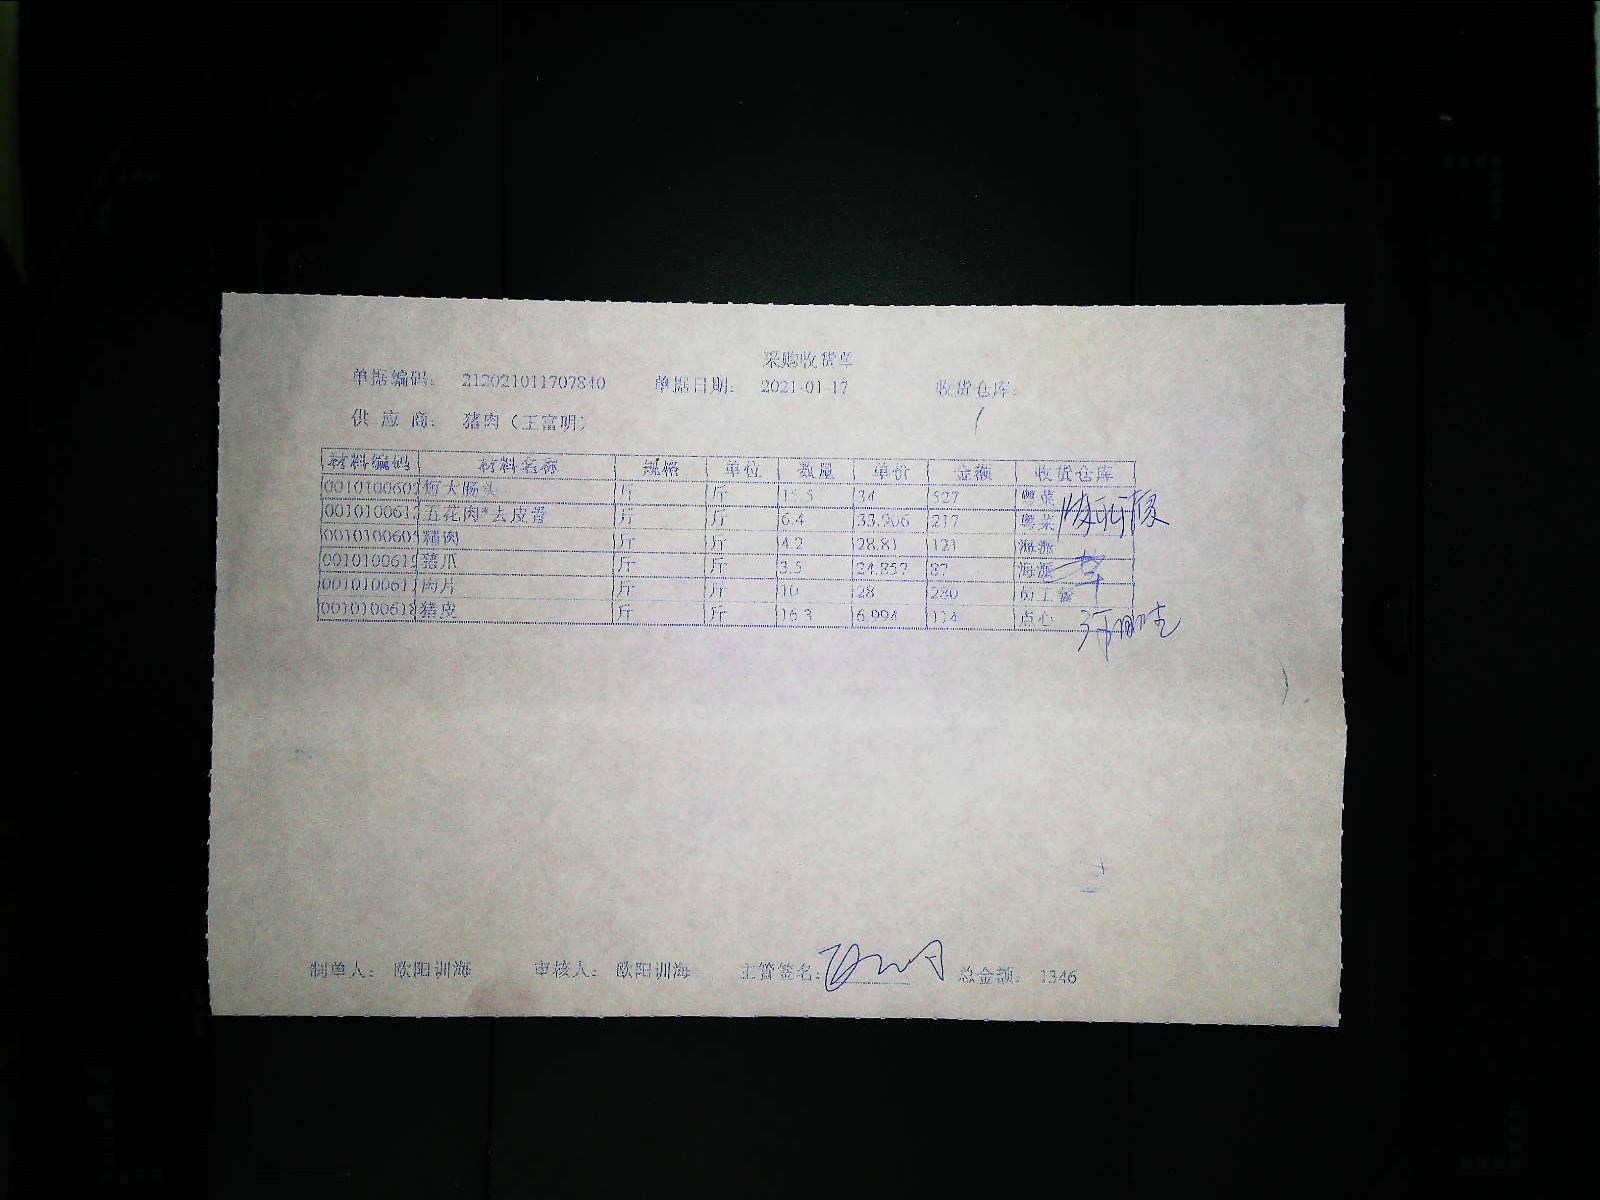 采购收货单
单据编码: 212021011707840 单据日期: 2021-01-17 收货仓库:
供 应 商: 猪肉（王富明）
材料编码 材料名称 规格 单位 数量 单价 金额 收货仓库
001010060 大肠头 斤 斤 15.5 34 527 粤菜
001010061 五花肉*去皮骨 斤 斤 6.4 33.906 217 粤菜
001010060 猪肉 斤 斤 4.2 28.81 121 海派
001010061 猪爪 斤 斤 3.5 24.857 87 海派
001010061 肉片 斤 斤 10 28 280 员工餐
001010061 猪皮 斤 斤 16.3 6.994 114 点心
制单人: 欧阳训海 审核人: 欧阳训海 主管签名: 总金额: 1346